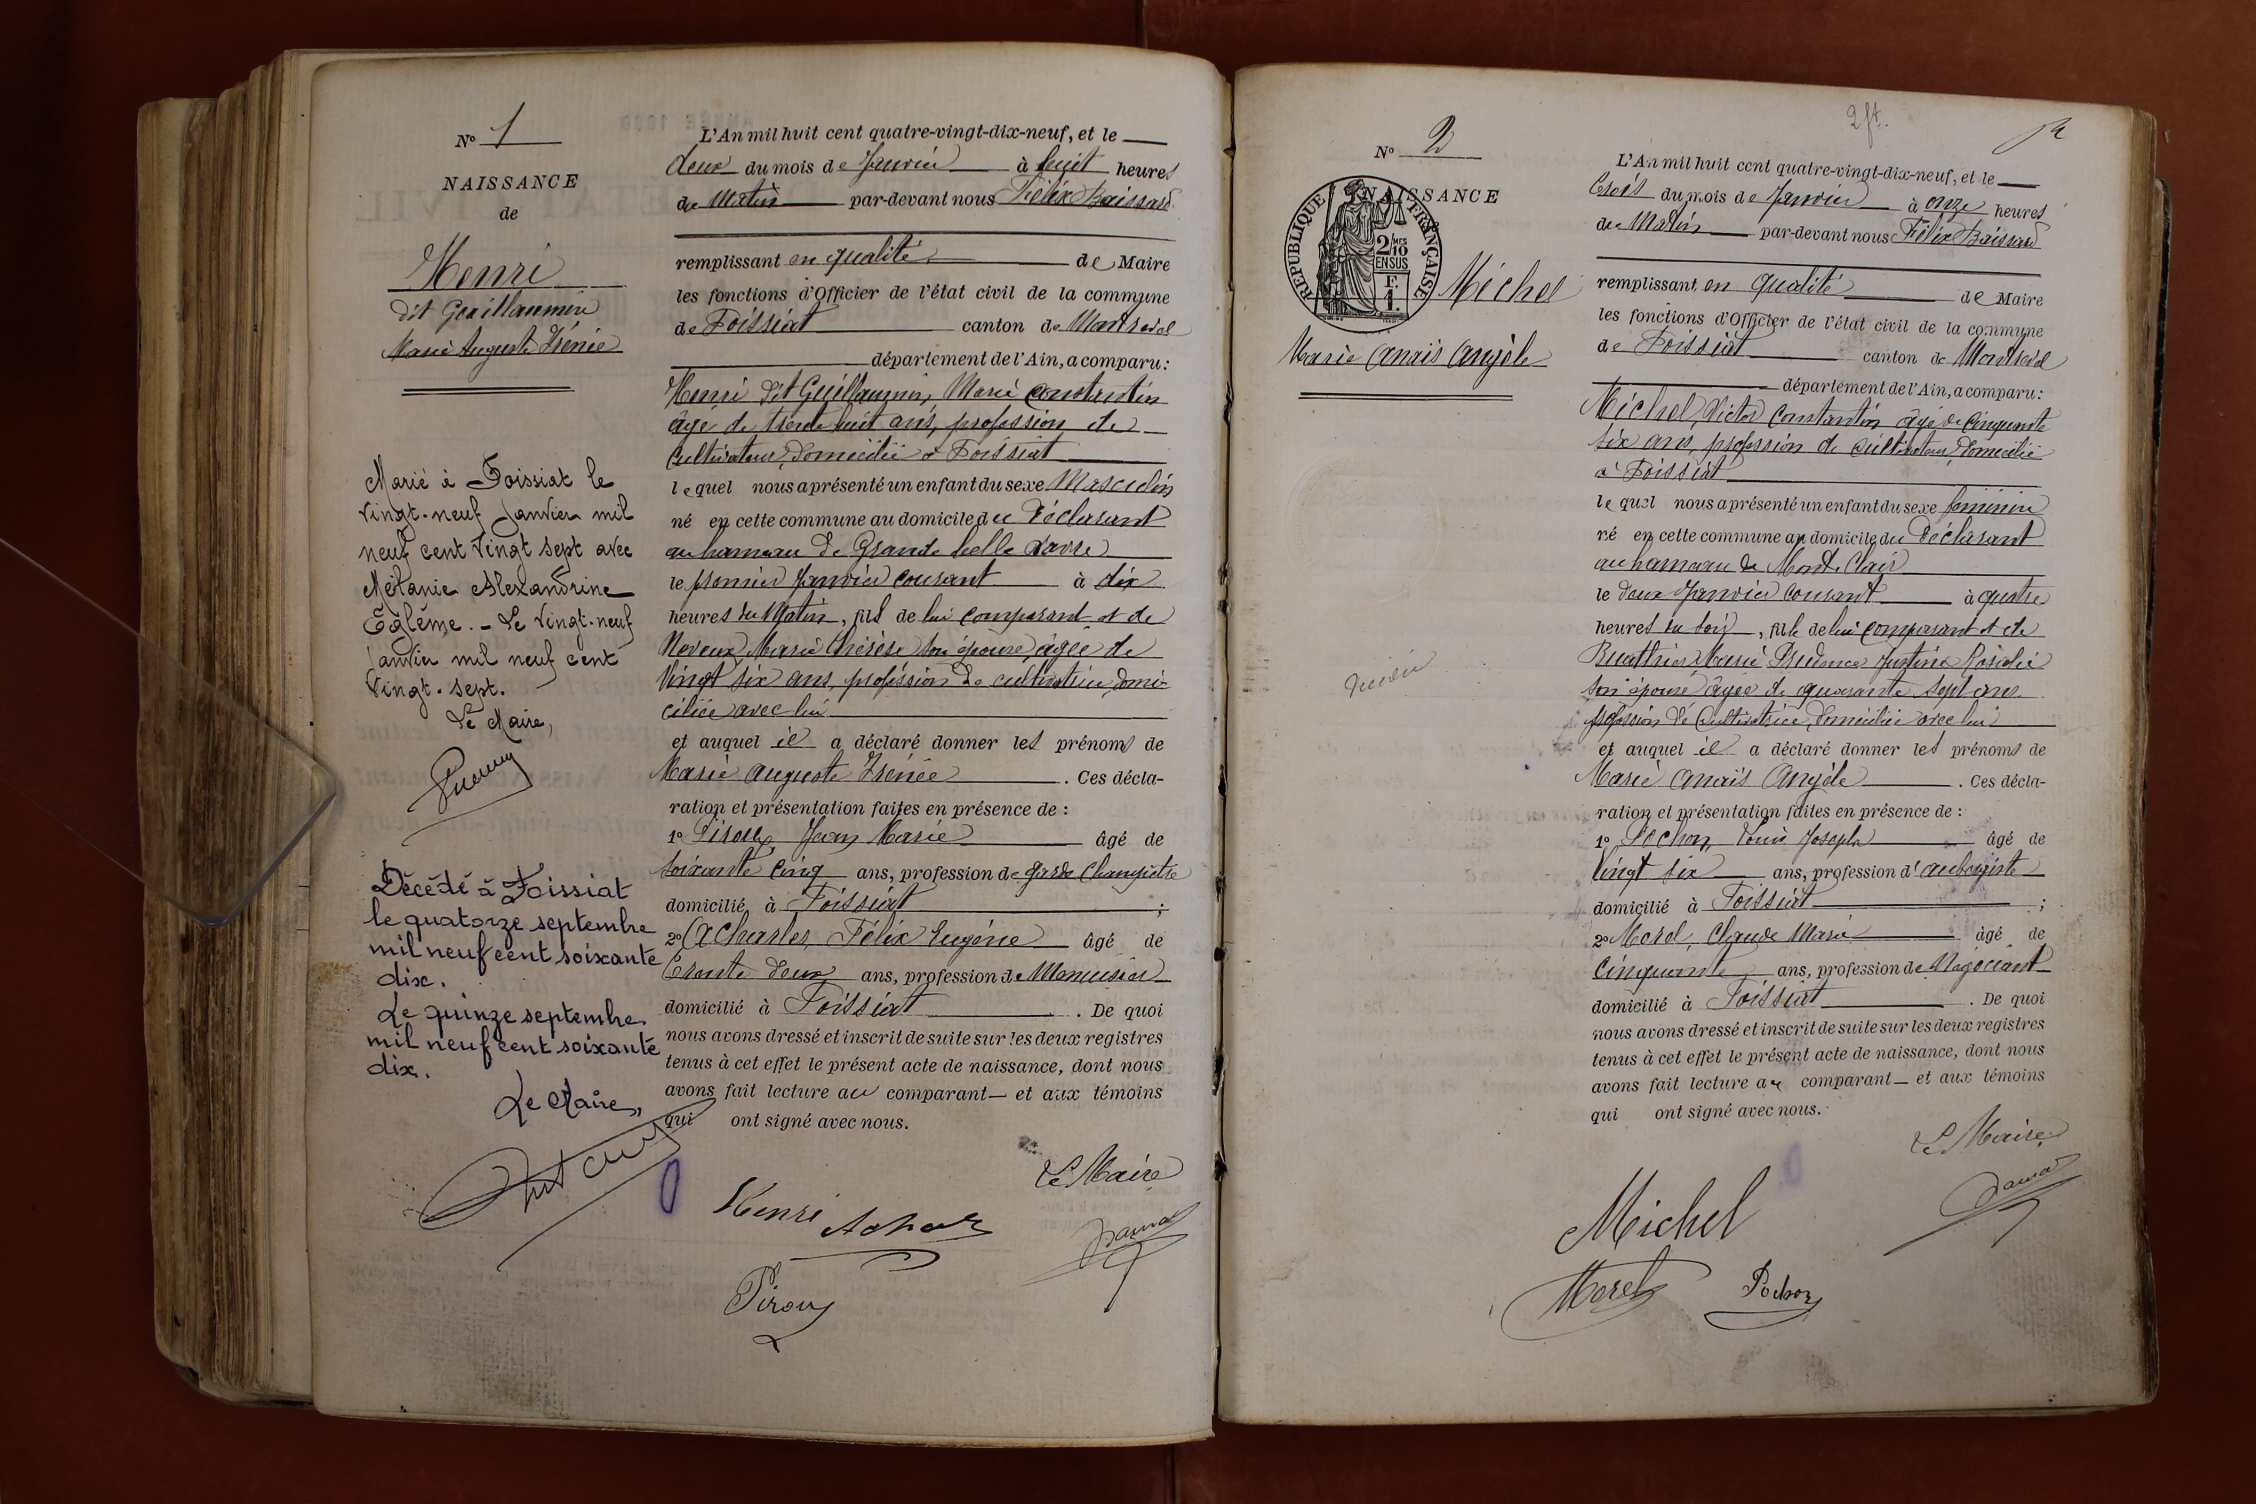 N° 1
NAISSANCE
de
Henri
dit Guillaumin
Marie Auguste Irénée
Marié à Foissiat le
vingt-neuf janvier mil
neuf cent vingt sept avec
Mélanie Alexandrine
Eglème. - Le vingt-neuf
janvier mil neuf cent
vingt-sept.
Le Maire,
Décédé à Foissiat
le quatorze septembre
mil neuf cent soixante
dix.
Le quinze septembre
mil neuf cent soixante
dix.
Le Maire,
L'An mil huit cent quatre-vingt-dix-neuf, et le
deux du mois de Janvier à huit heures
du Matin par-devant nous Félix Baissard
remplissant en qualité de Maire
les fonctions d'Officier de l'état civil de la commune
de Foissiat canton de Montrevel
département de l'Ain, a comparu:
Henri dit Guillaumin, Marie Constantin
âgé de trente huit ans, profession de
Cultivateur, domicilié à Foissiat
lequel nous a présenté un enfant du sexe Masculin
né en cette commune au domicile du déclarant
au hameau de Grande
le premier Janvier courant à dix
heures du Matin, fils de lui comparant et de
Neveux, Marie Thérèse son épouse, âgée de
Vingt six ans, profession de cultivatrice, domi-
ciliée avec lui
et auquel il a déclaré donner les prénoms de
Marie Auguste Irénée . Ces décla-
ration et présentation faites en présence de :
1° Piroux, Jean Marie âgé de
soixante cinq ans, profession de garde Champêtre
domicilié à Foissiat ;
2° Acharles, Félix Eugène âgé de
Trente deux ans, profession de Menuisier
domicilié à Foissiat . De quoi
nous avons dressé et inscrit de suite sur les deux registres
tenus à cet effet le présent acte de naissance, dont nous
avons fait lecture au comparant et aux témoins
qui ont signé avec nous.
Le Maire
Henri
Piroux
2 ft.
N° 2
NAISSANCE
RÉPUBLIQUE FRANÇAISE
2/10 MES
EN SUS
F.
1.
Michel
Marie Anaïs Angèle
L'An mil huit cent quatre-vingt-dix-neuf, et le
trois du mois de Janvier à onze heures
du Matin par-devant nous Félix Baissard
remplissant en qualité de Maire
les fonctions d'Officier de l'état civil de la commune
de Foissiat canton de Montrevel
département de l'Ain, a comparu:
Michel, Victor Constantin âgé de Cinquante
six ans, profession de cultivateur, domicilié
à Foissiat
lequel nous a présenté un enfant du sexe féminin
né en cette commune au domicile du déclarant
au hameau de Mont-Clair
le deux Janvier courant à quatre
heures du soir, fille de lui comparant et de
Marie Prudence Justine Rosalie
son épouse âgée de quarante sept ans
profession de Cultivatrice, domiciliée avec lui
et auquel il a déclaré donner les prénoms de
Marie Anaïs Angèle . Ces décla-
ration et présentation faites en présence de :
1° Pochon, Louis Joseph âgé de
Vingt six ans, profession d'aubergiste
domicilié à Foissiat ;
2° Morel, Claude Marie âgé de
Cinquante ans, profession de Négociant
domicilié à Foissiat . De quoi
nous avons dressé et inscrit de suite sur les deux registres
tenus à cet effet le présent acte de naissance, dont nous
avons fait lecture au comparant et aux témoins
qui ont signé avec nous.
Le Maire
Michel
Morel Pochon